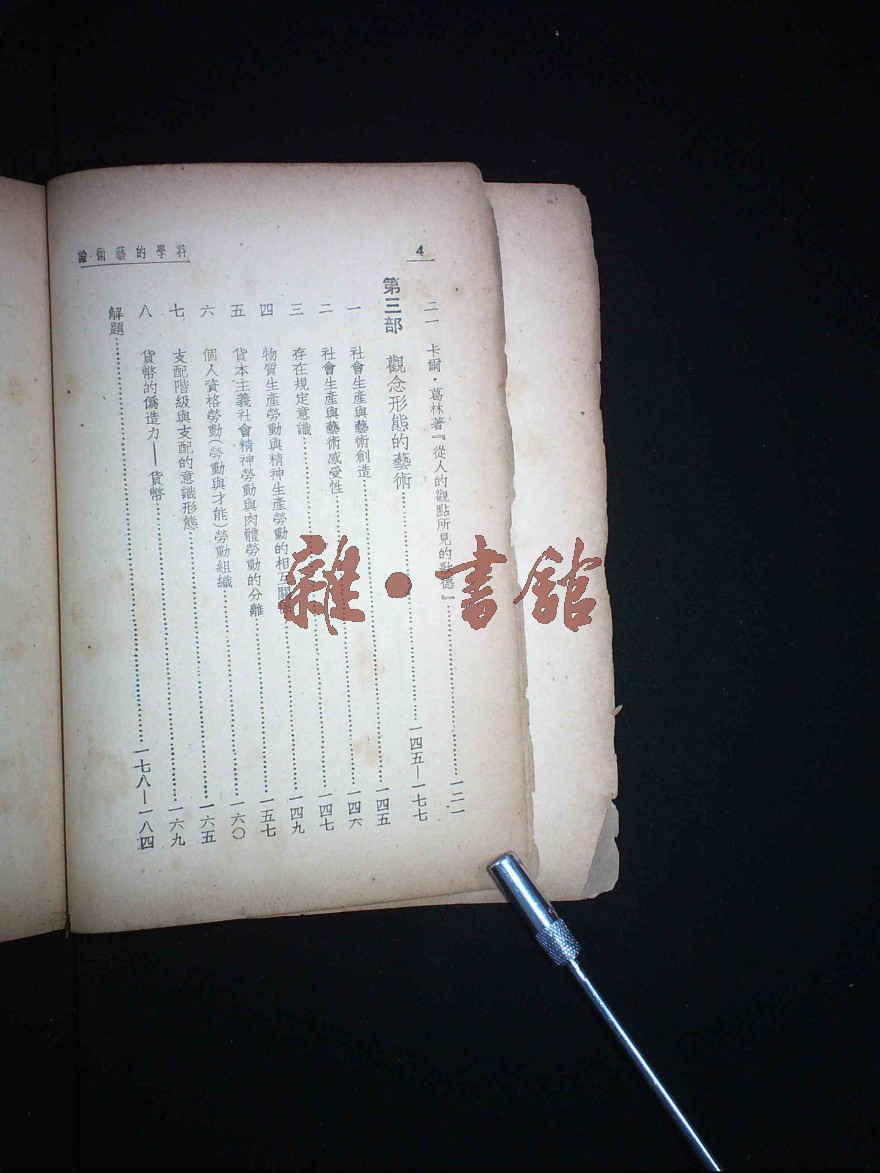 4
科學的藝術論
二一 卡爾・葛林著『從人的觀點所見的歌德』……一二一
第三部 觀念形態的藝術……一四五—一七七
一 社會生產與藝術創造……一四五
二 社會生產與藝術感受性……一四六
三 存在規定意識……一四七
四 物質生產勞動與精神生產勞動的相互關係……一四九
五 資本主義社會精神勞動與肉體勞動的分離……一五七
六 個人資格勞動(勞動與才能)勞動組織……一六〇
七 支配階級與支配的意識形態……一六五
八 貨幣的僞造力——貨幣……一六九
解題……一七八—一八四
雜・書館